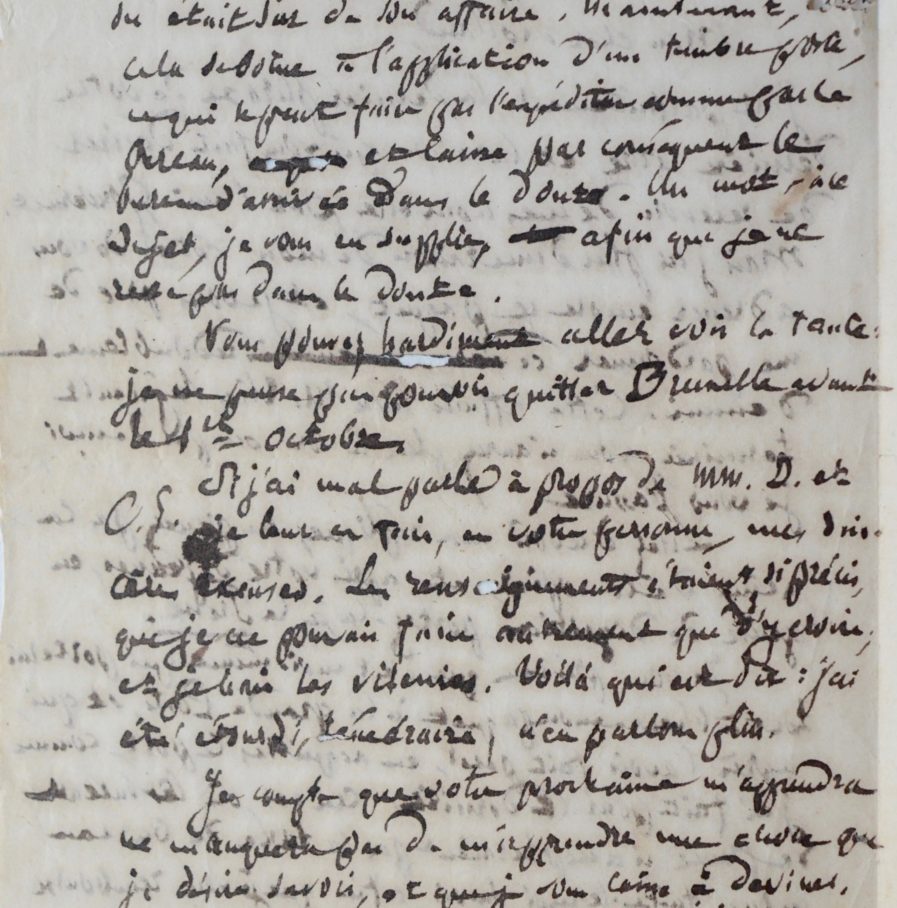 on était sûr de son affaire. Maintenant,
cela se borne à l'application d'un timbre poste,
ce qui se peut faire par l'expéditeur comme par le
bureau, et laisse par conséquent le
bureau d'arrivée dans le doute. Un mot à ce
sujet, je vous en supplie, afin que je ne
reste pas dans le doute.
Vous pouvez hardiment aller voir la tante:
je ne pense pas pouvoir quitter Bruxelles avant
le 1er octobre.
Si j'ai mal parlé à propos de MM. D. et
C. je leur en fais, en votre personne, mes sin-
cères excuses. Les renseignements étaient si précis,
que je ne pouvais faire autrement que d'y croire,
et je hais les vilenies. Voilà qui est dit: j'ai
été étourdi, téméraire, n'en parlons plus.
Je compte que votre prochaine m'apprendra
ne manquera pas de m'apprendre une chose que
je désire savoir, et que je vous laisse à deviner.